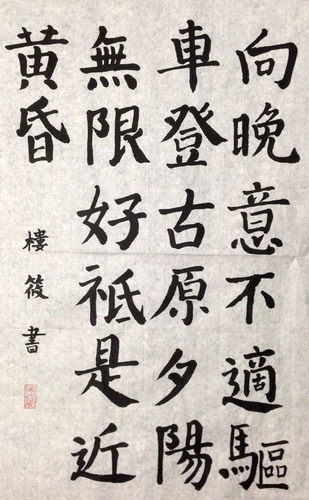 向晚意不適驅
車登古原夕陽
無限好祗是近
黃昏
樓筱書